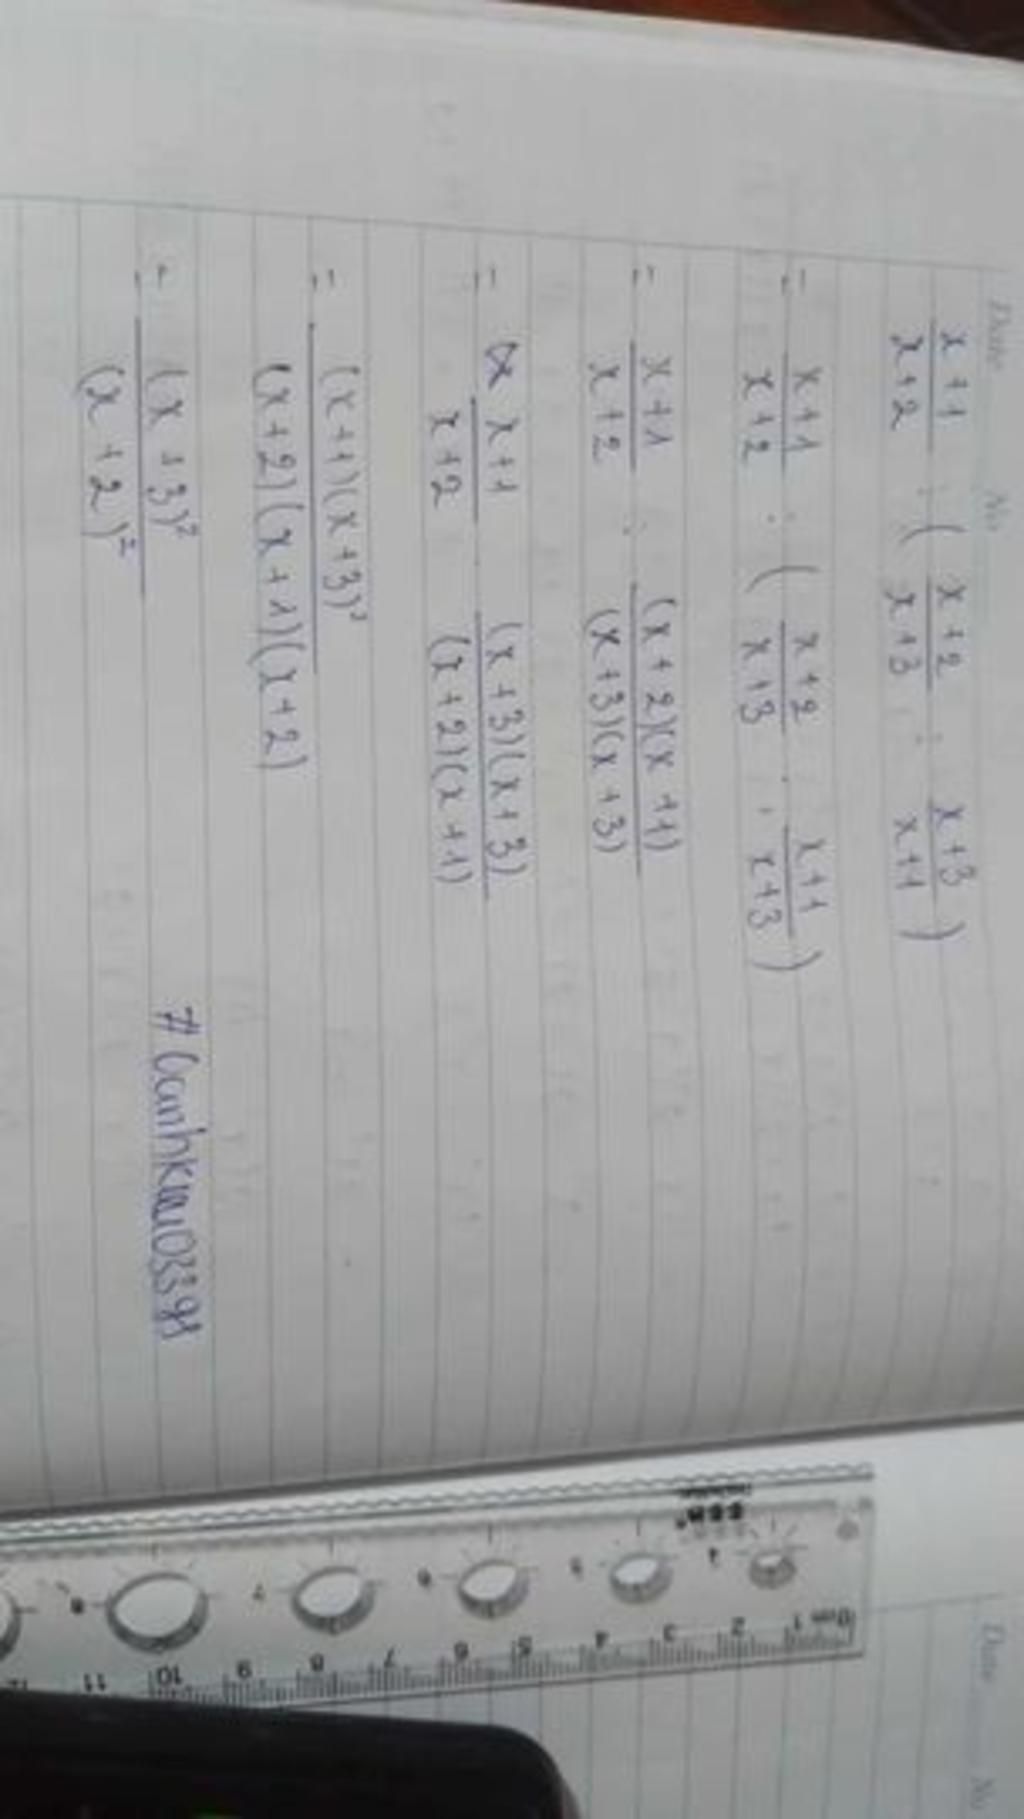 Date No
x+1/x+2 : ( x+2/x+3 : x+3/x+1 )
= x+1/x+2 : ( x+2/x+3 . x+1/x+3 )
= x+1/x+2 : (x+2)(x+1)/(x+3)(x+3)
= x+1/x+2 . (x+3)(x+3)/(x+2)(x+1)
= (x+1)(x+3)²/(x+2)(x+1)(x+2)
= (x+3)²/(x+2)²
0cm 1 2 3 4 5 6 7 8 9 10 11 12
4 5 6 7 8
Date No